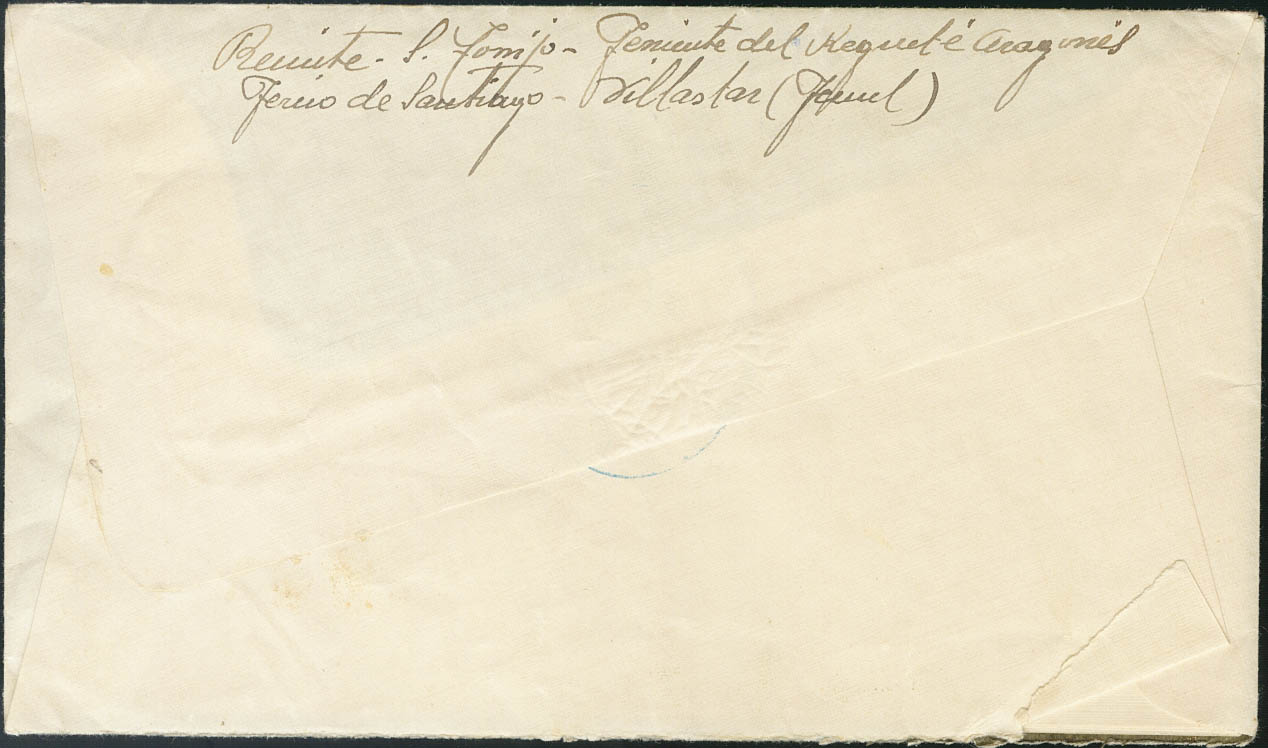 Remite - S. Torrijo - Teniente del Requeté Aragonés
Tercio de Santiago - Villastar (Teruel)